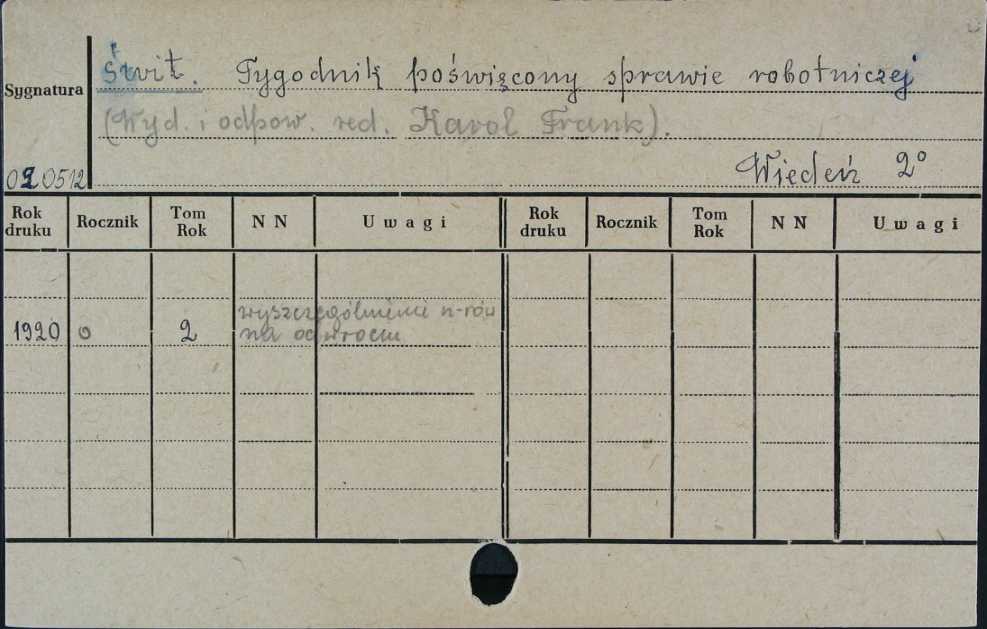 Świt. Tygodnik poświęcony sprawie robotniczej
Sygnatura
(Wyd. i odpow. red. Karol Frank).
020512
Wiedeń 2°
Rok druku Rocznik Tom Rok N N Uwagi Rok druku Rocznik Tom Rok N N Uwagi
wyszczególnienie n-rów
1920 0 2 na odwrociu